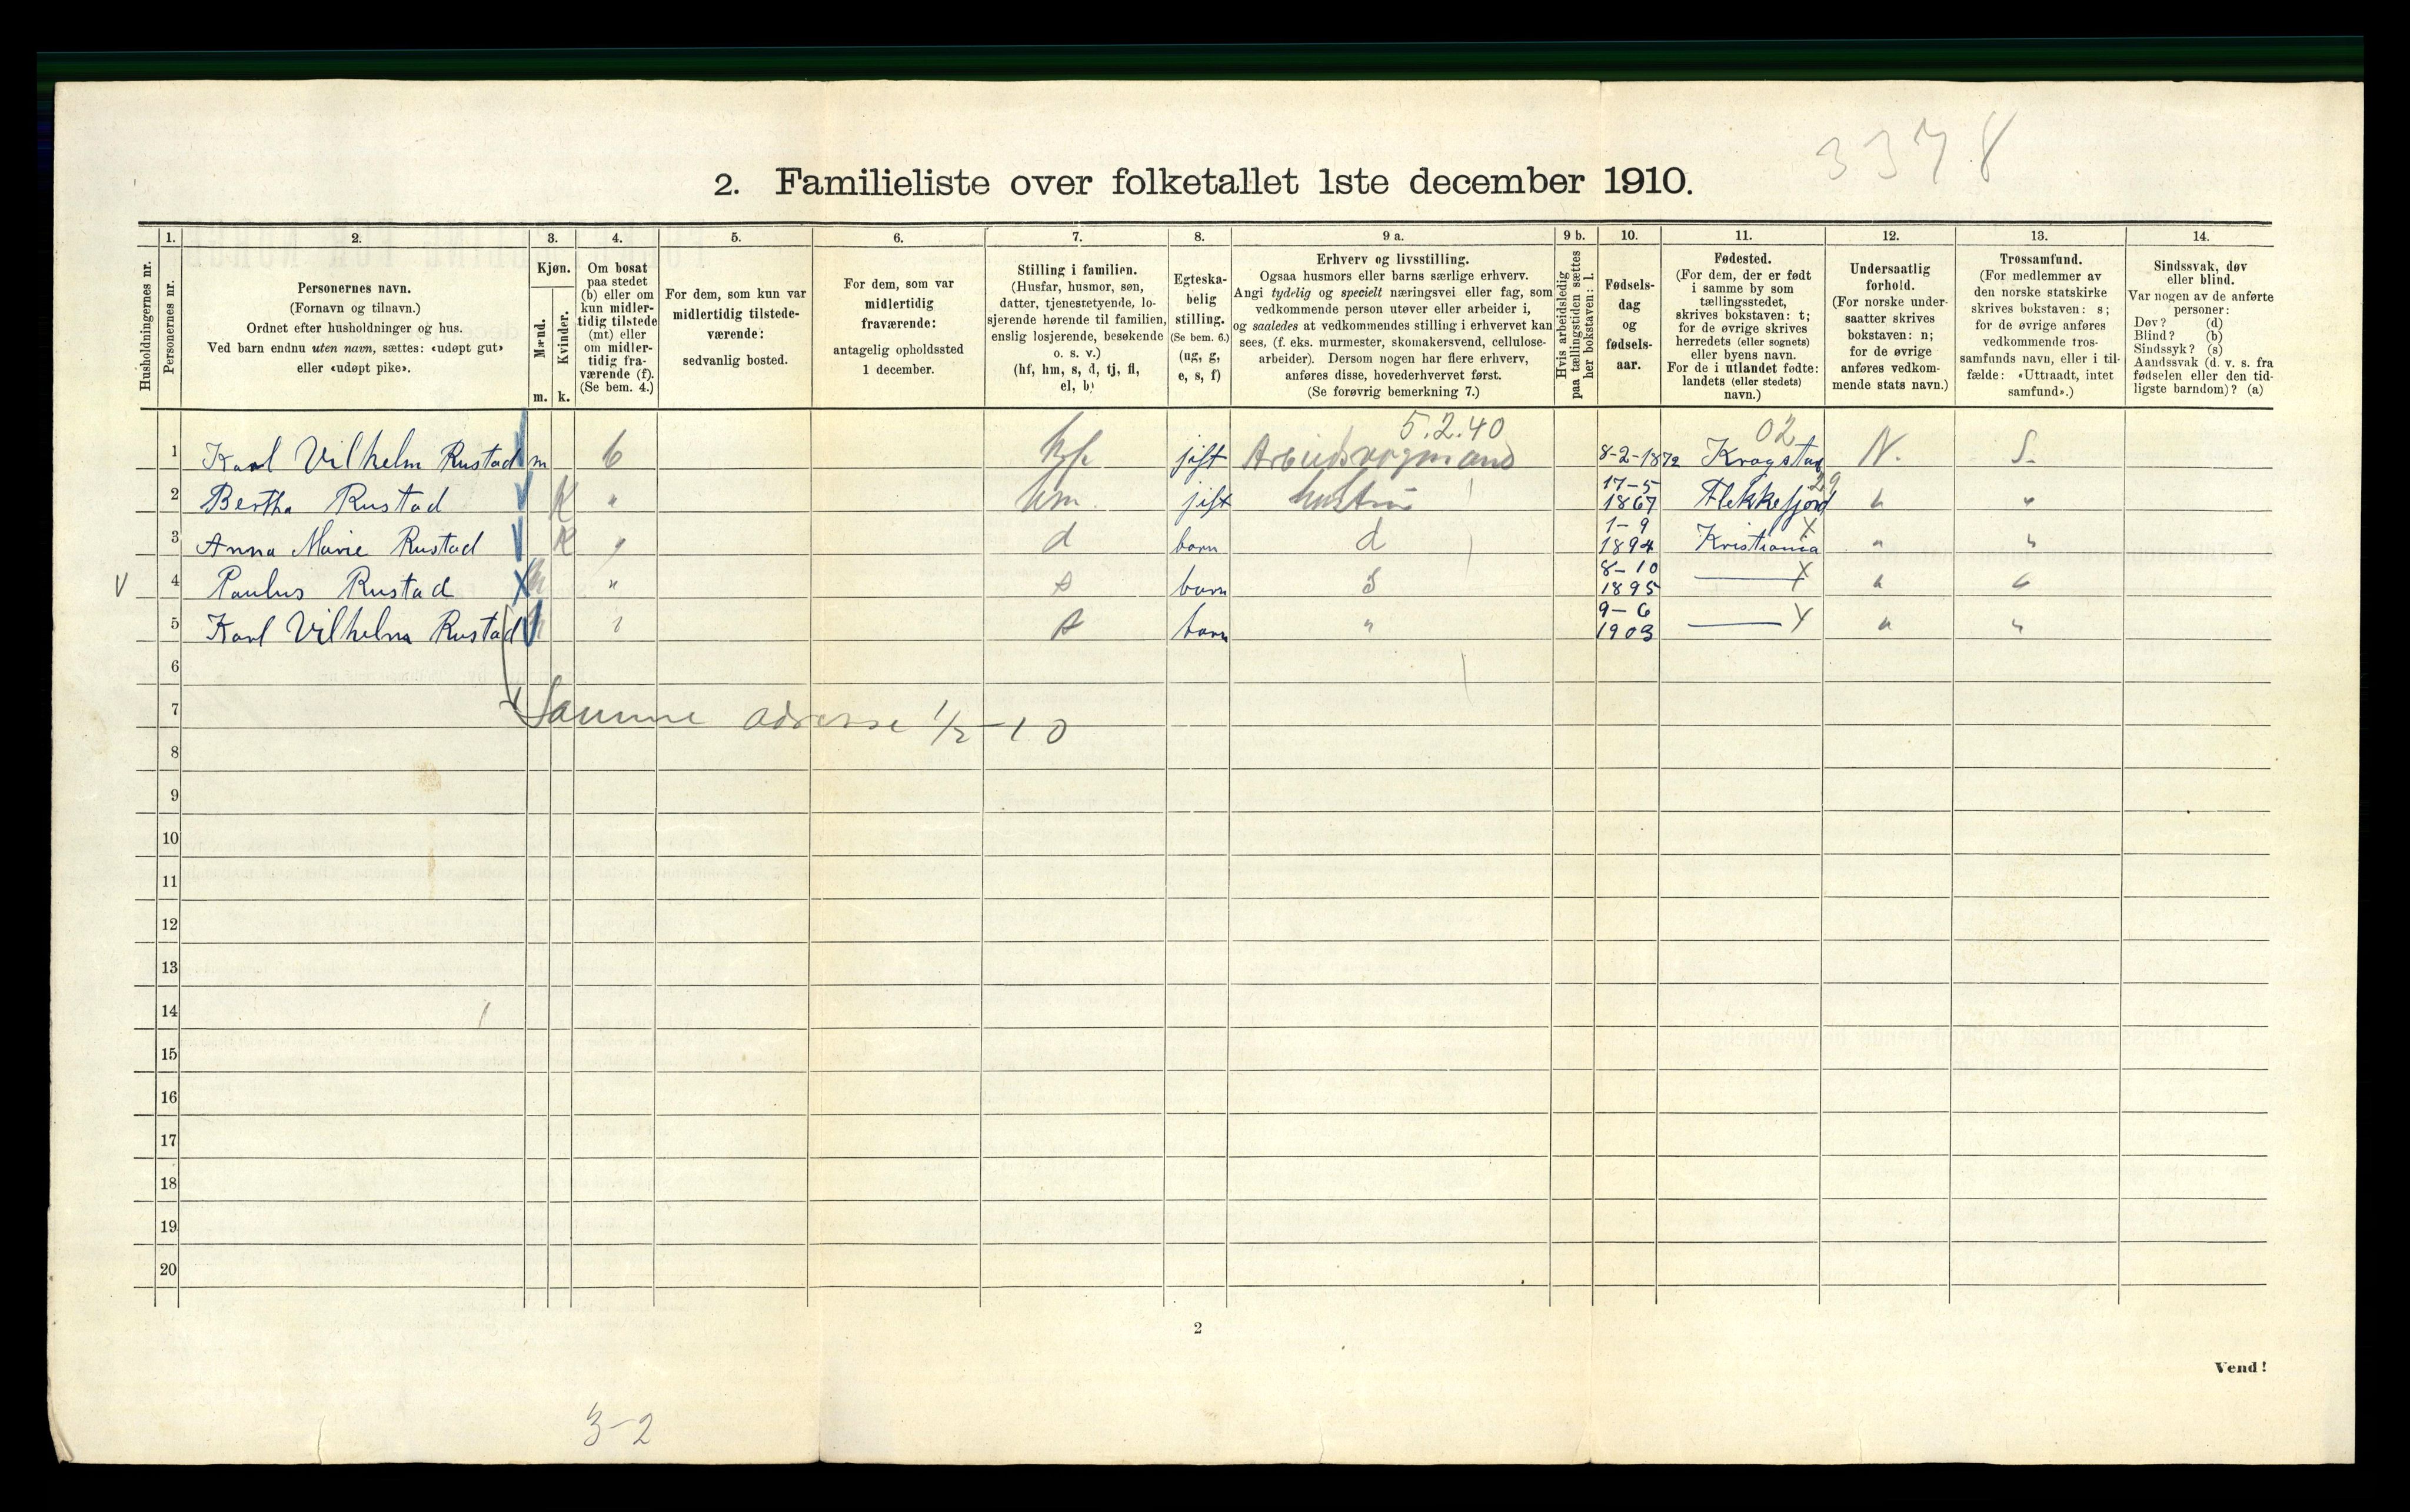 3378
2. Familieliste over folketallet 1ste december 1910.
Husholdningernes nr.
1.
Personernes nr.
2.
Personernes navn.
(Fornavn og tilnavn.)
Ordnet efter husholdninger og hus.
Ved barn endnu uten navn, sættes: «udøpt gut»
eller «udøpt pike».
3.
Kjøn.
Mænd.
Kvinder.
m.
k.
4.
Om bosat
paa stedet
(b) eller om
kun midler-
tidig tilstede
(mt) eller
om midler-
tidig fra-
værende (f).
(Se bem. 4.)
5.
For dem, som kun var
midlertidig tilstede-
værende:
sedvanlig bosted.
6.
For dem, som var
midlertidig
fraværende:
antagelig opholdssted
1 december.
7.
Stilling i familien.
(Husfar, husmor, søn,
datter, tjenestetyende, lo-
sjerende hørende til familien,
enslig losjerende, besøkende
o. s. v.)
(hf, hm, s, d, tj, fl,
el, b)
8.
Egteska-
belig
stilling.
(Se bem. 6.)
(ug, g,
e, s, f)
9 a.
Erhverv og livsstilling.
Ogsaa husmors eller barns særlige erhverv.
Angi tydelig og specielt næringsvei eller fag, som
vedkommende person utøver eller arbeider i,
og saaledes at vedkommendes stilling i erhvervet kan
sees, (f. eks. murmester, skomakersvend, cellulose-
arbeider). Dersom nogen har flere erhverv,
anføres disse, hovederhvervet først.
(Se forøvrig bemerkning 7.)
9 b.
Hvis arbeidsledig
paa tællingstiden sættes
her bokstaven: l.
10.
Fødsels-
dag
og
fødsels-
aar.
11.
Fødested.
(For dem, der er født
i samme by som
tællingsstedet,
skrives bokstaven: t;
for de øvrige skrives
herredets (eller sognets)
eller byens navn.
For de i utlandet fødte:
landets (eller stedets)
navn.)
12.
Undersaatlig
forhold.
(For norske under-
saatter skrives
bokstaven: n;
for de øvrige
anføres vedkom-
mende stats navn.)
13.
Trossamfund.
(For medlemmer av
den norske statskirke
skrives bokstaven: s;
for de øvrige anføres
vedkommende tros-
samfunds navn, eller i til-
fælde: «Uttraadt, intet
samfund».)
14.
Sindssvak, døv
eller blind.
Var nogen av de anførte
personer:
Døv? (d)
Blind? (b)
Sindssyk? (s)
Aandssvak (d. v. s. fra
fødselen eller den tid-
ligste barndom)? (a)
5.2.40 02
1 Karl Vilhelm Rustad m b hf jift Arbeidsvognmand 8-2-1872 Kragstad N. S.
2 Bertha Rustad K " hm. jift hustru 17-5 1867 Flekkefjord 29 " "
3 Anna Marie Rustad K " d barn d 1-9 1894 Kristiania X " "
V 4 Paulus Rustad X m " s barn S 8-10 1895 — X " "
5 Karl Vilhelm Rustad m " s barn " 9-6 1903 — X " "
6
7 Samme adresse 1/2-10
8
9
10
11
12
13
14
15
16
17
18
19
20
2
Vend!
3-2